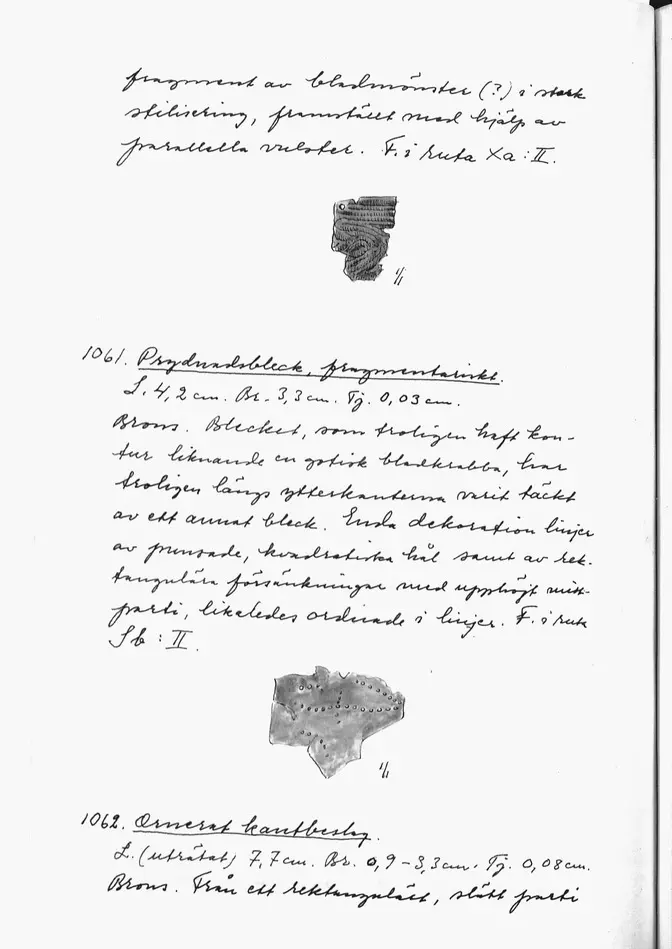 fragment av bladmönster (?) i stark
stilisering, framställt med hjälp av
parallella vulster. F. i ruta Xa : II.
1/1
1061. Prydnadsbleck, fragmentariskt.
L. 4,2 cm. Br. 3,3 cm. Tj. 0,03 cm.
Brons. Blecket, som troligen haft kon-
tur liknande en gotisk bladkrabba, har
troligen längs ytterkanterna varit täckt
av ett annat bleck. Enda dekoration linjer
av punsade, kvadratiska hål samt av rek-
tangulära försänkningar med upphöjt mitt-
parti, likaledes ordnade i linjer. F. i ruta
Sb : II.
1/1
1062. Ornerat kantbeslag.
L. (uträtat) 7,7 cm. Br. 0,9 - 3,3 cm. Tj. 0,08 cm.
Brons. Från ett rektangulärt, slätt parti